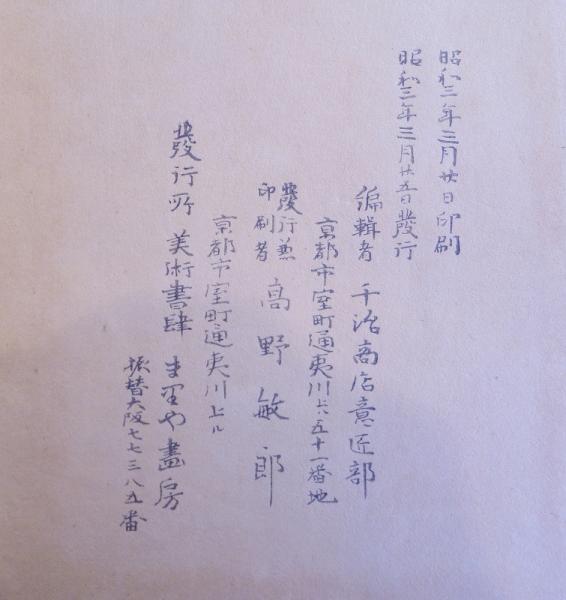 昭和三年三月廿日印刷
昭和三年三月廿五日發行
編輯者 千治商店意匠部
京都市室町通夷川上ル五十一番地
發行兼
印刷者
高野敏郎
京都市室町通夷川上ル
發行所 美術書肆 まリや畫房
振替大阪七七三八五番